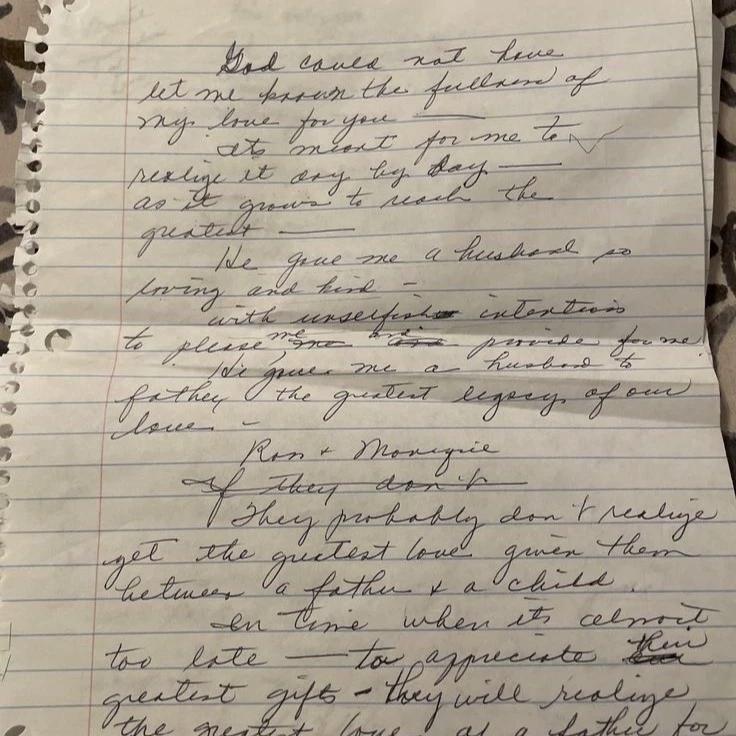 God could not have
let me known the fullness of
my love for you —
Its meant for me to
realize it day by day —
as it grows to reach the
greatest —
He gave me a husband so
loving and kind -
with unselfish intentions
to please me and provide for me
He gives me a husband to
father the greatest legacy of our
love -
Ron + Monique
If they don't
They probably don't realize
yet the greatest love given them
between a father & a child.
In time when its almost
too late — to appreciate their
greatest gifts - they will realize
the greatest love of a father for